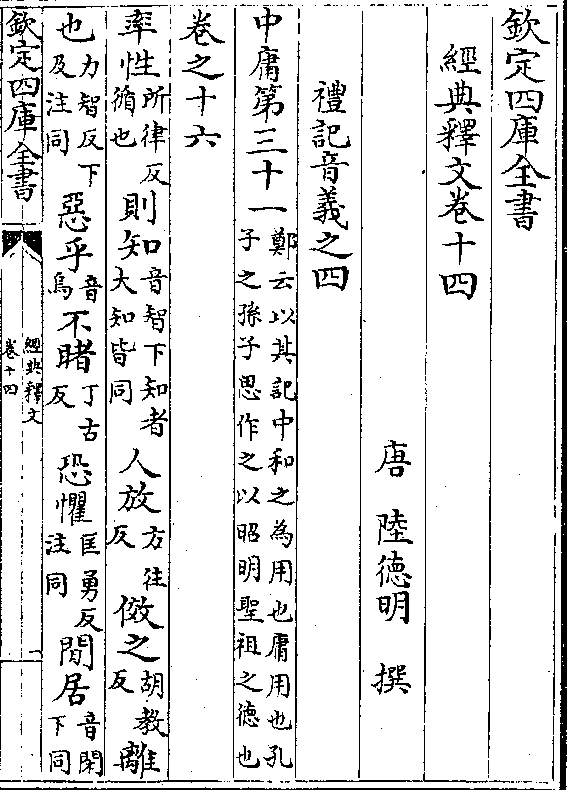 欽定四庫全書
經典釋文卷十四
唐 陸德明 撰
禮記音義之四
中庸第三十一 鄭云以其記中和之為用也庸用也孔子之孫子思作之以昭明聖祖之德也
卷之十六
率性 所律反循也 則知 音智下知者大知皆同 人放 方往反 傚之 胡教反 離
也 力智反下及注同 惡乎 音烏 不睹 丁古反 恐懼 匡勇反注同 閒居 音閑下同
欽定四庫全書
經典釋文
卷十四
一